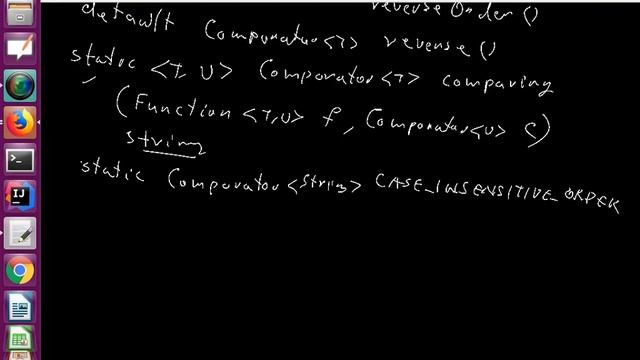 reverseOrder()
default Comparator<T> reverse()
static <T, U> Comparator<T> comparing
(Function <T,U> f, Comparator<U> c)
string
static Comparator<String> CASE_INSENSITIVE_ORDER
IJ